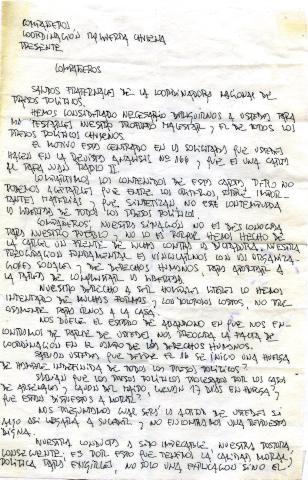 COMPAÑEROS
COORDINACION IZQUIERDA CHILENA
PRESENTE
COMPAÑEROS
SALUDOS FRATERNALES DE LA COORDINADORA NACIONAL DE
PRESOS POLITICOS.
HEMOS CONSIDERADO NECESARIO DIRIGIRNOS A USTEDES PARA
MANIFESTARLES NUESTRO PROFUNDO MALESTAR Y EL DE TODOS LOS
PRESOS POLITICOS CHILENOS.
EL MOTIVO ESTA CENTRADO EN LA SOLICITADA QUE USTEDES
HACEN EN LA REVISTA ANALISIS NO 166 Y QUE ES UNA CARTA
AL PAPA JUAN PABLO II.
COMPARTIMOS LOS CONTENIDOS DE ESTA CARTA, PERO NO
PODEMOS ACEPTARLES QUE ENTRE LOS CRITERIOS, ENTRE IMPOR-
TANTES MATERIAS, QUE SINTETIZAN NO ESTE CONTEMPLADA
LA LIBERTAD DE TODOS LOS PRESOS POLITICOS.
COMPAÑEROS, NUESTRA SITUACION NO ES DESCONOCIDA
PARA NUESTRO PUEBLO Y NO LO ES PORQUE HEMOS HECHO DE
LA CARCEL UN FRENTE DE LUCHA CONTRA LA DICTADURA. NUESTRA
PREOCUPACION FUNDAMENTAL ES VINCULARNOS CON LAS ORGANIZA-
CIONES SOCIALES Y DE DERECHOS HUMANOS, PARA APORTAR A
LA TAREA DE CONQUISTAR LA LIBERTAD.
NUESTRO DERECHO A SER LIBRES LO HEMOS
INTENTADO DE MUCHAS FORMAS Y LOS DOLOROSOS COSTOS, NO PRE-
CISAMENTE PARA IRNOS A LA CASA.
NOS DUELE EL ESTADO DE ABANDONO EN QUE NOS EN-
CONTRAMOS DE PARTE DE USTEDES. NOS PREOCUPA LA FALTA DE
COORDINACION EN EL CAMPO DE LOS DERECHOS HUMANOS.
SABIAN USTEDES QUE DESDE EL 16 SE INICIO UNA HUELGA
DE HAMBRE INDEFINIDA DE TODOS LOS PRESOS POLITICOS?
SABIAN QUE LOS PRESOS POLITICOS PROCESADOS POR LOS CASOS
DE ARSENALES Y CAJON DEL MAIPO, LLEVAN 13 DIAS EN HUELGA Y
QUE ESTAN DISPUESTOS A MORIR?
NOS PREGUNTAMOS CUAL SERIA LA ACTITUD DE USTEDES SI
ALGO ASI LLEGARA A SUCEDER Y NO ENCONTRAMOS UNA RESPUESTA
DIGNA.
NUESTRA CONDUCTA A SIDO IMPECABLE, NUESTRA POSTURA
CONSECUENTE; ES POR ESTO QUE TENEMOS LA CALIDAD MORAL Y
POLITICA PARA EXIGIRLES, NO SOLO UNA EXPLICACION SINO EL